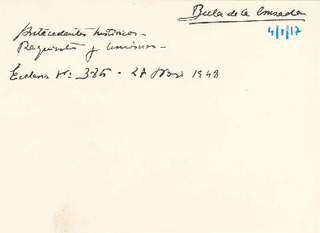 Bula de la Cruzada
4/1/17
Antecedentes históricos –
Requisitos y
Ecclesia Nº 385 - 27 Nov 1948